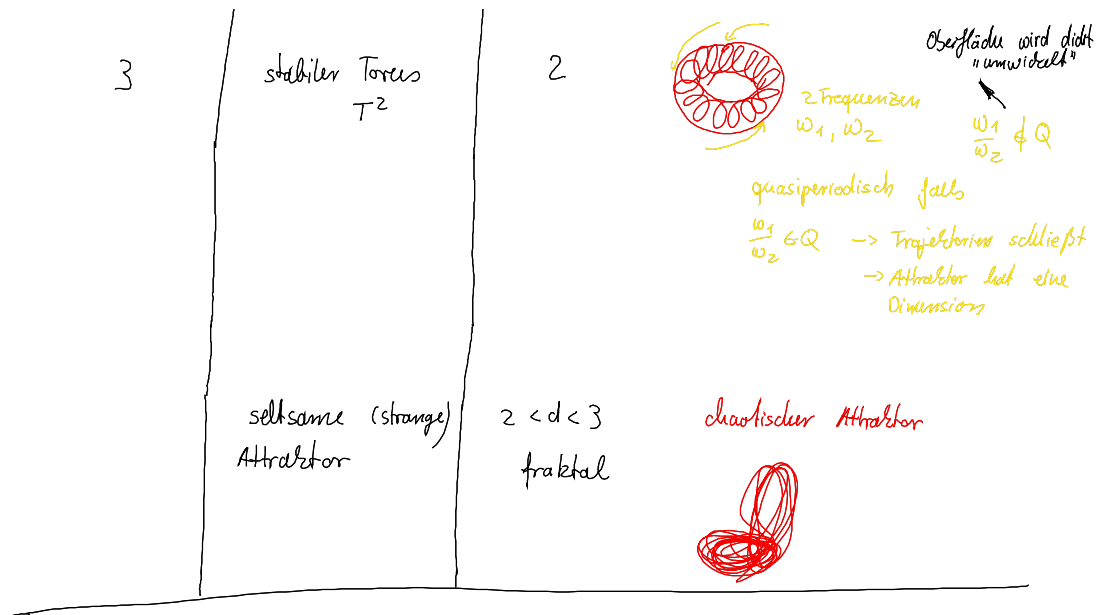 3
stabiler Torus
T²
2
2 Frequenzen
ω₁, ω₂
Oberfläche wird dicht
"umwickelt"
ω₁/ω₂ ∉ Q
quasiperiodisch falls
ω₁/ω₂ ∈ Q → Trajektorien schließt
→ Attraktor hat eine
Dimension
seltsame (strange)
Attraktor
2 < d < 3
fraktal
chaotischer Attraktor